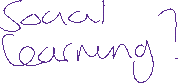 Social
Learning?